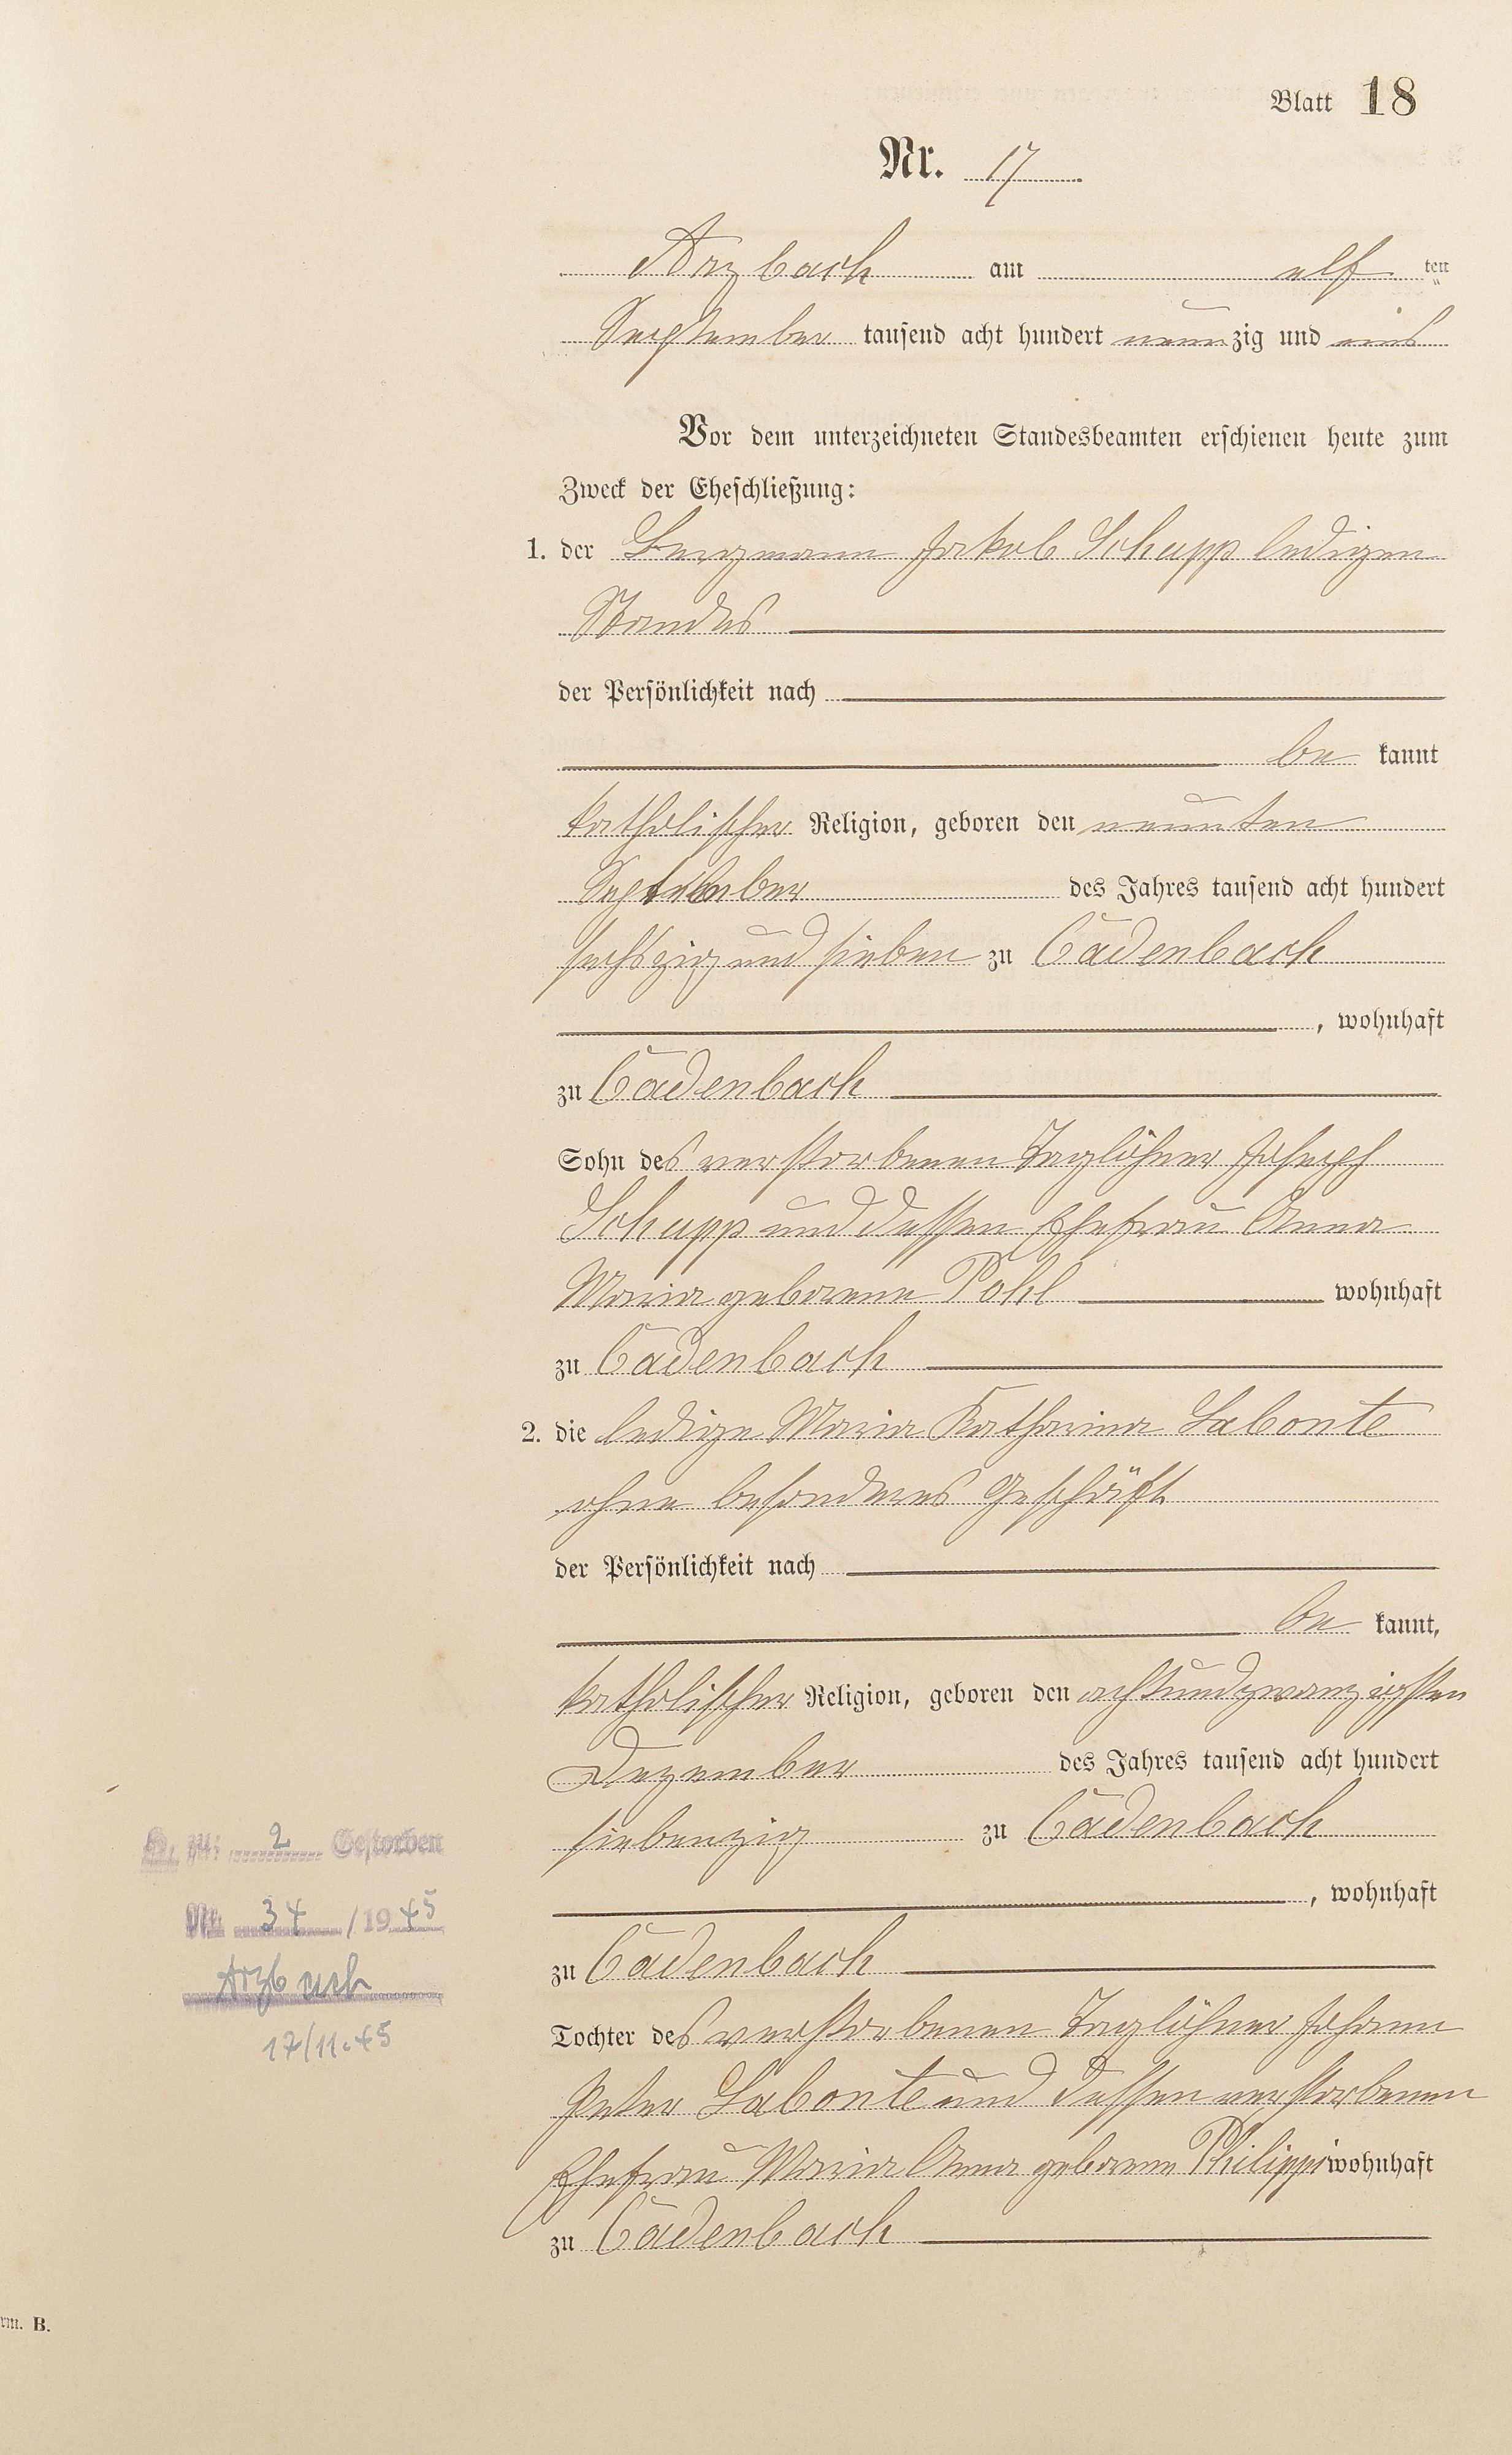 Blatt 18
Nr. 17
Arzbach am elf ten
September tausend acht hundert neunzig und eins
Vor dem unterzeichneten Standesbeamten erschienen heute zum
Zweck der Eheschließung:
1. der Bergmann Jakob Schupp ledigen
Standes
der Persönlichkeit nach
be kannt
katholischer Religion, geboren den neunten
September des Jahres tausend acht hundert
sechszig und sieben zu Cadenbach
, wohnhaft
zu Cadenbach
Sohn des verstorbenen Taglöhner Joseph
Schupp und dessen Ehefrau Anna
Maria geborene Pohl wohnhaft
zu Cadenbach
2. die ledige Maria Katharina Labonte
ohne besonderes Geschäft
der Persönlichkeit nach
be kannt,
katholischer Religion, geboren den achtundzwanzigsten
Dezember des Jahres tausend acht hundert
siebenzig zu Cadenbach
, wohnhaft
zu Cadenbach
Tochter des verstorbenen Taglöhner Johann
Peter Labonte und dessen verstorbenen
Ehefrau Maria Anna geborene Philippi wohnhaft
zu Cadenbach
zu: 2 Gestorben
Nr. 34 / 1945
Arzbach
17/11.45
rm. B.